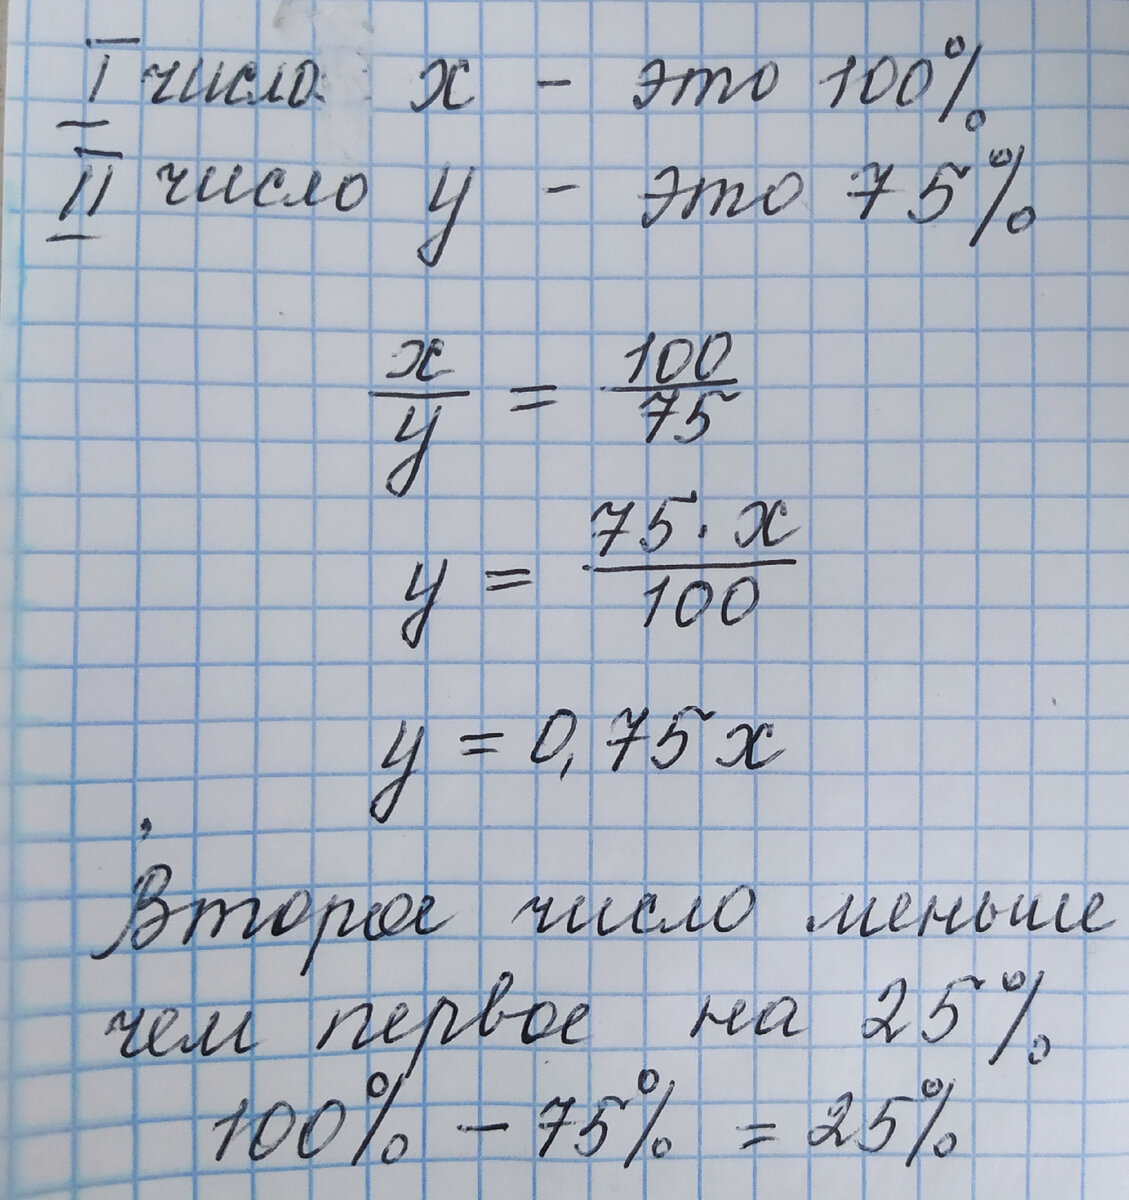 I число x - это 100%
II число y - это 75%
x/y = 100/75
y = 75·x/100
y = 0,75x
Второе число меньше
чем первое на 25%
100% - 75% = 25%